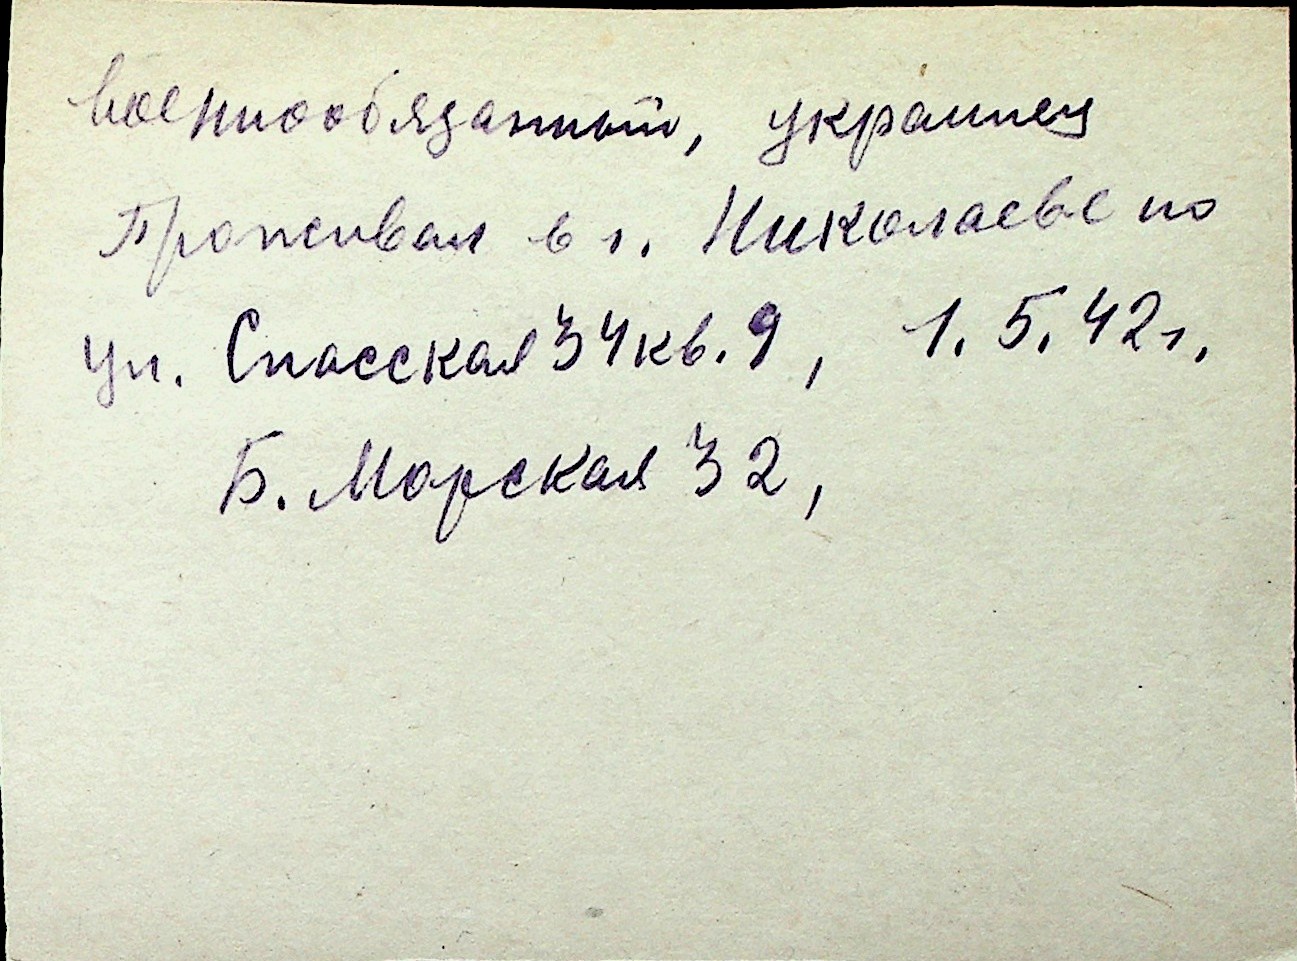 военнообязанный, украинец
Проживал в г. Николаеве по
ул. Спасская 34 кв. 9, 1.5.42 г.
Б. Морская 32,